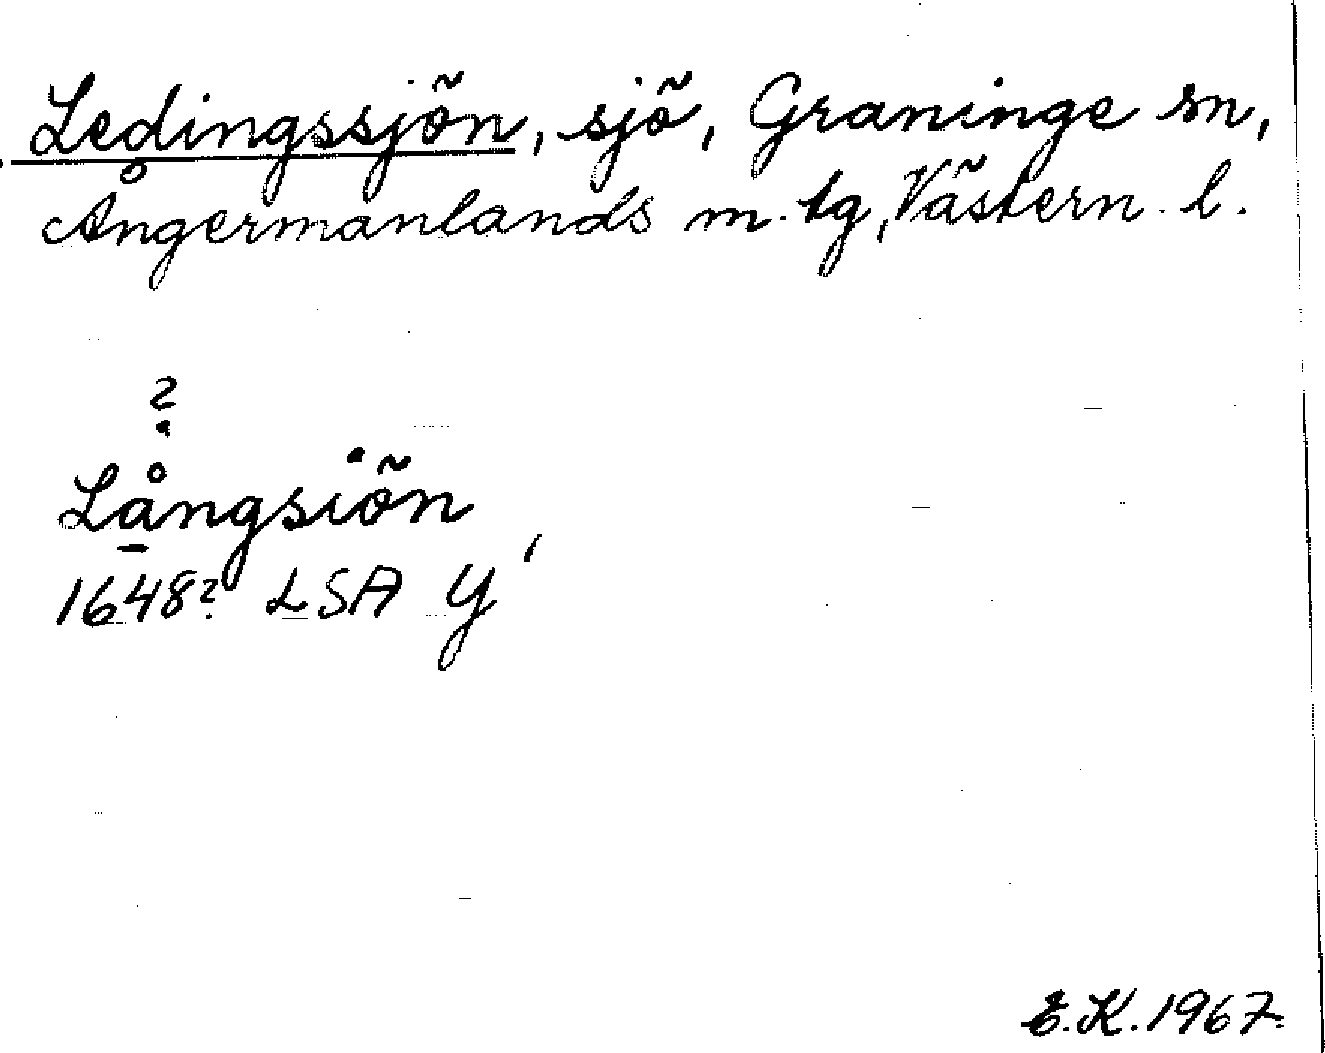 Ledingssjön, sjö, Graninge sn,
Ångermanlands m. tg, Västern. l.
?
Långsiön
1648? LSA Y'
E.K. 1967.